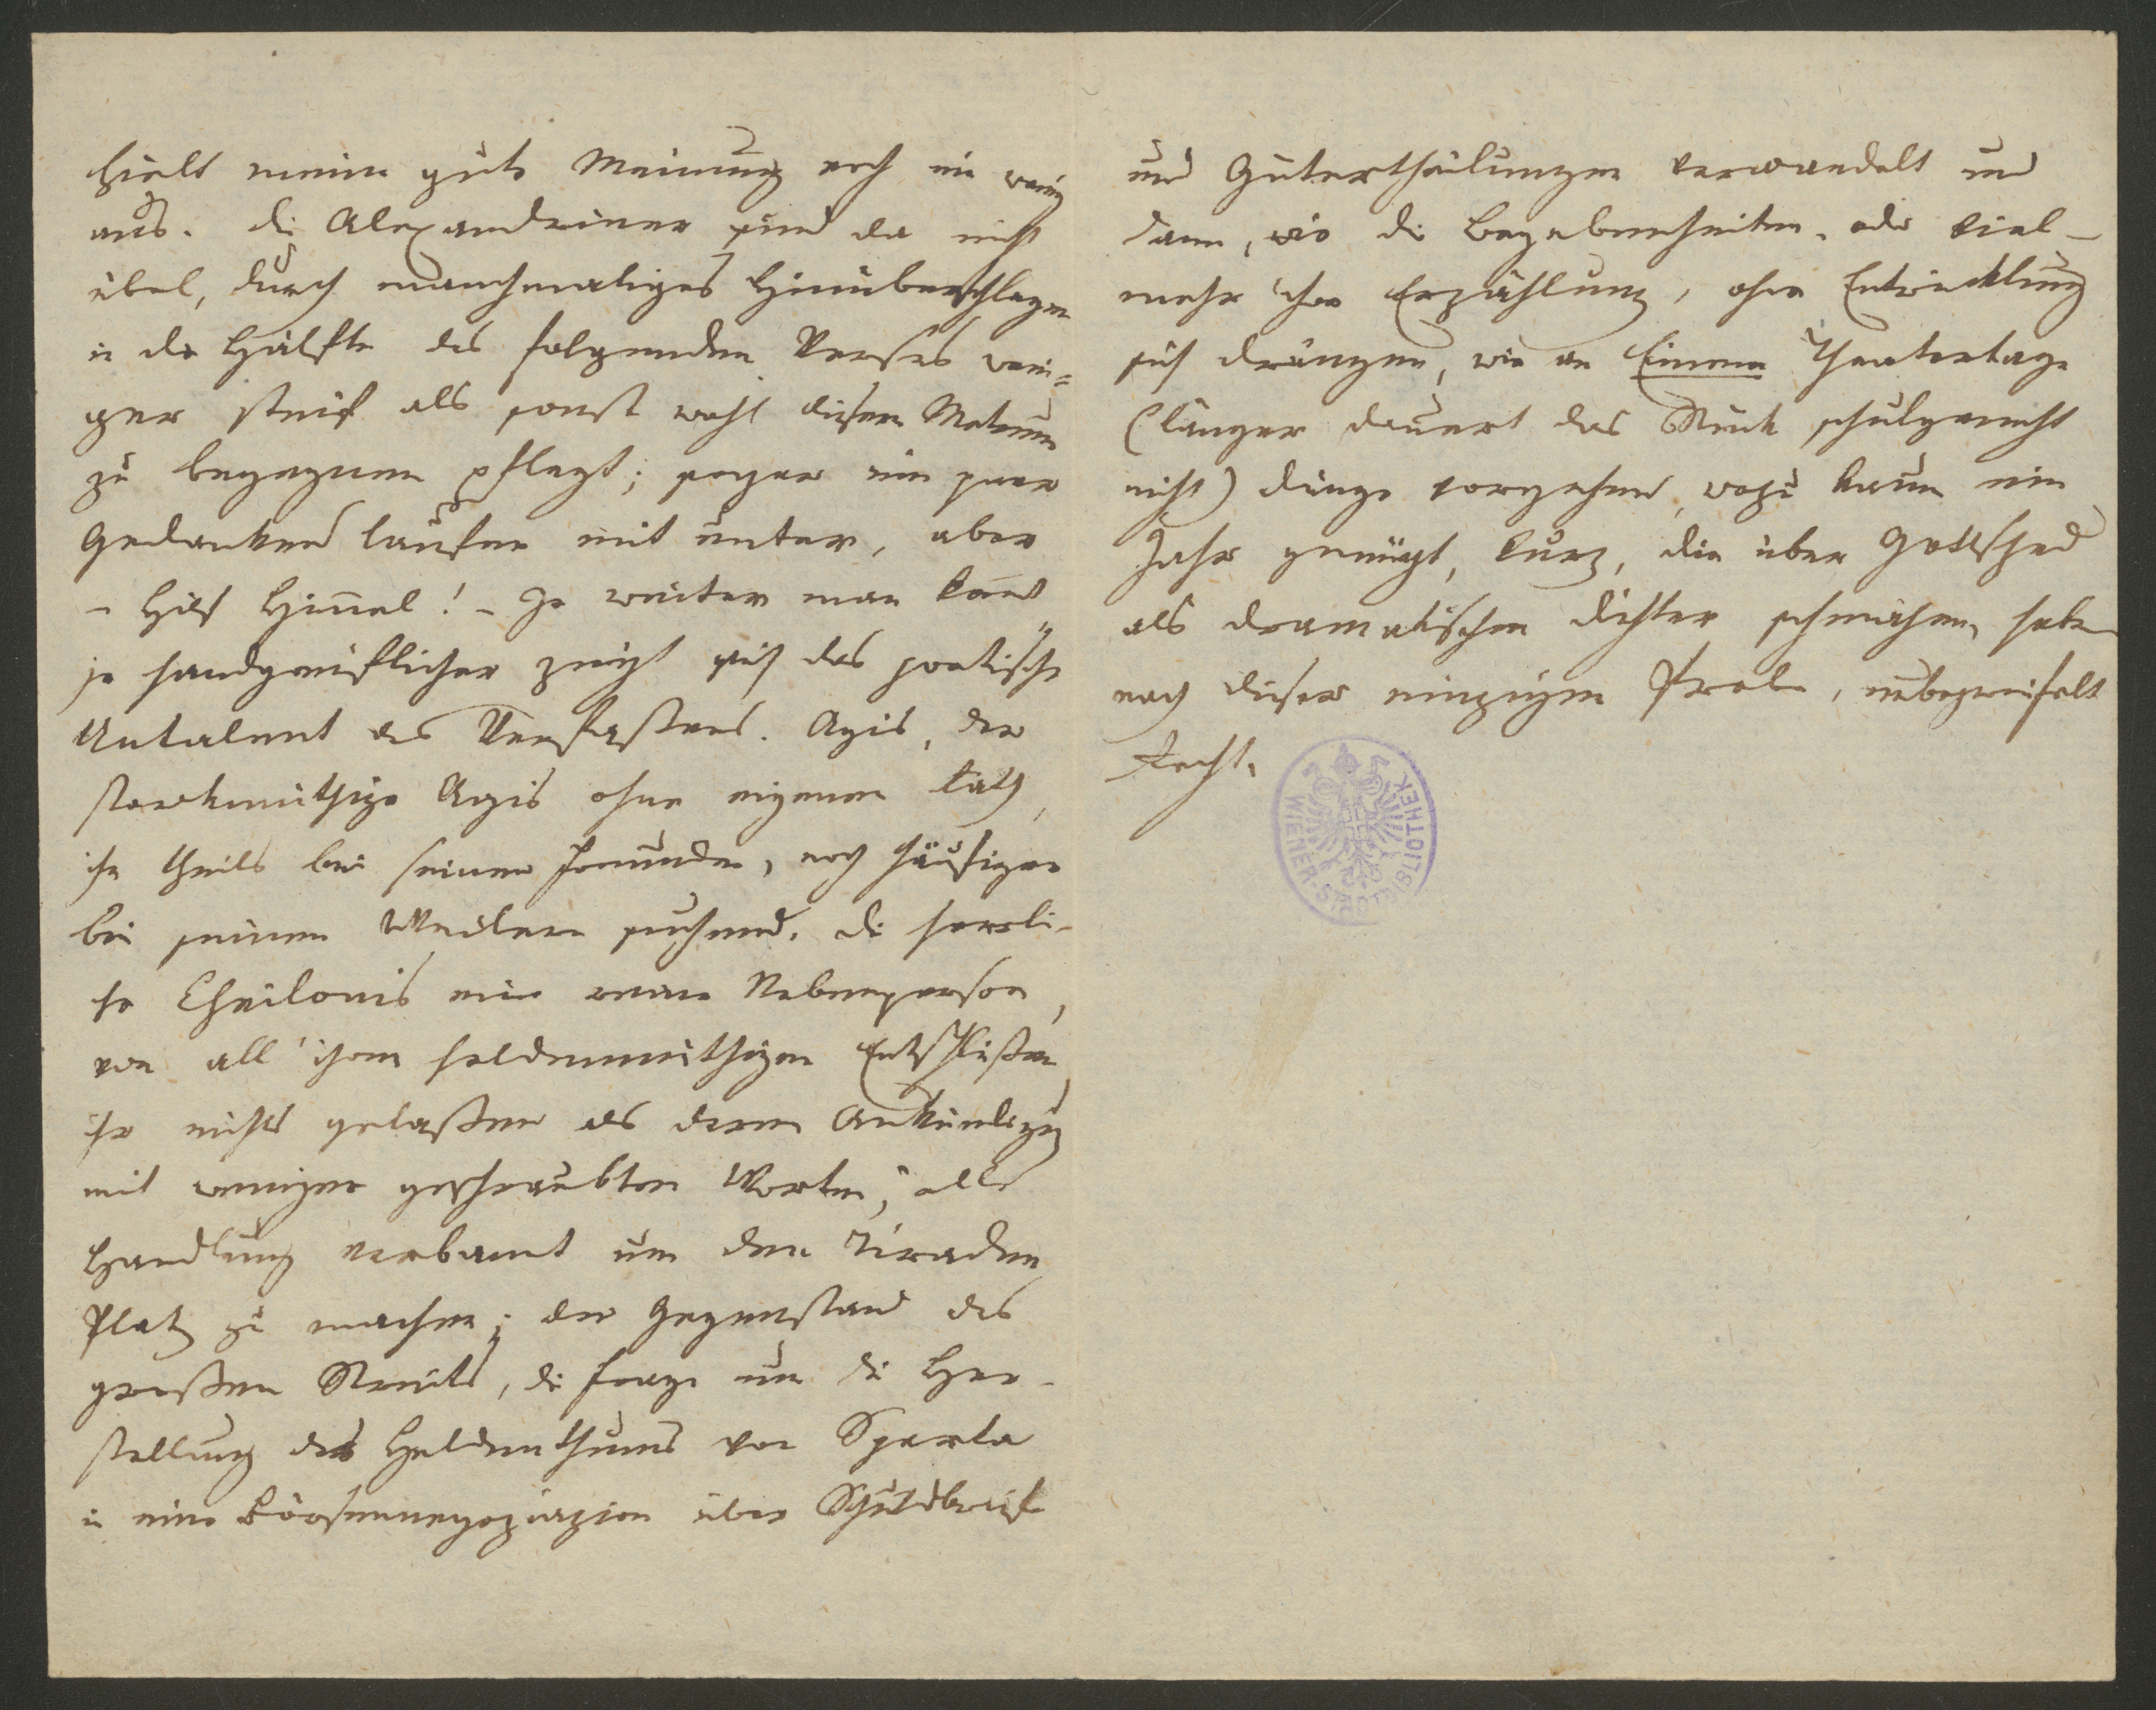 hielt meine gute Meinung noch ein wenig
aus. Die Alexandriner sind da nicht
übel, durch manchmaliges Hinüberschlagen
in die Hälfte des folgenden Verses weni-
ger steif als sonst wohl diesem Metrum
zu begegnen pflegt; sogar ein paar
Gedanken laufen mit unter, aber
– hilf Himmel! – Je weiter man komt
je handgreiflicher zeigt sich das poetische
Untalent des Verfaßers. Agis, der
starkmüthige Agis ohne eigenen Rath,
ihn theils bei seinen Freunden, noch häufiger
bei seinen Weibern suchend. die herrli-
che Cheilonis eine reine Nebenperson,
von all' ihren heldenmüthigen Entschlüßen
ihr nichts gelaßen als deren Ankündigung
mit wenigen geschraubten Worten; alle
Handlung verbannt um den Tiraden
Platz zu machen; der Gegenstand des
großen Streits, die Frage um die Her-
stellung des Heldenthums von Sparta
in eine Börsennegoziazion über Schuldbriefe
und Gütertheilungen verwandelt und
dann, wie die Begebenheiten, oder viel-
mehr ihre Erzählung, ohne Entwicklung
sich drängen, wie an Einem Theatertage
(länger dauert das Stück schulgerecht
nicht) Dinge vorgehen, wozu kaum ein
Jahr genügt, kurz, die über Gottsched
als dramatischen Dichter schmähen, haben
nach dieser einzigen Probe, unbezweifelt
Recht.
WIENER-STADTBIBLIOTHEK